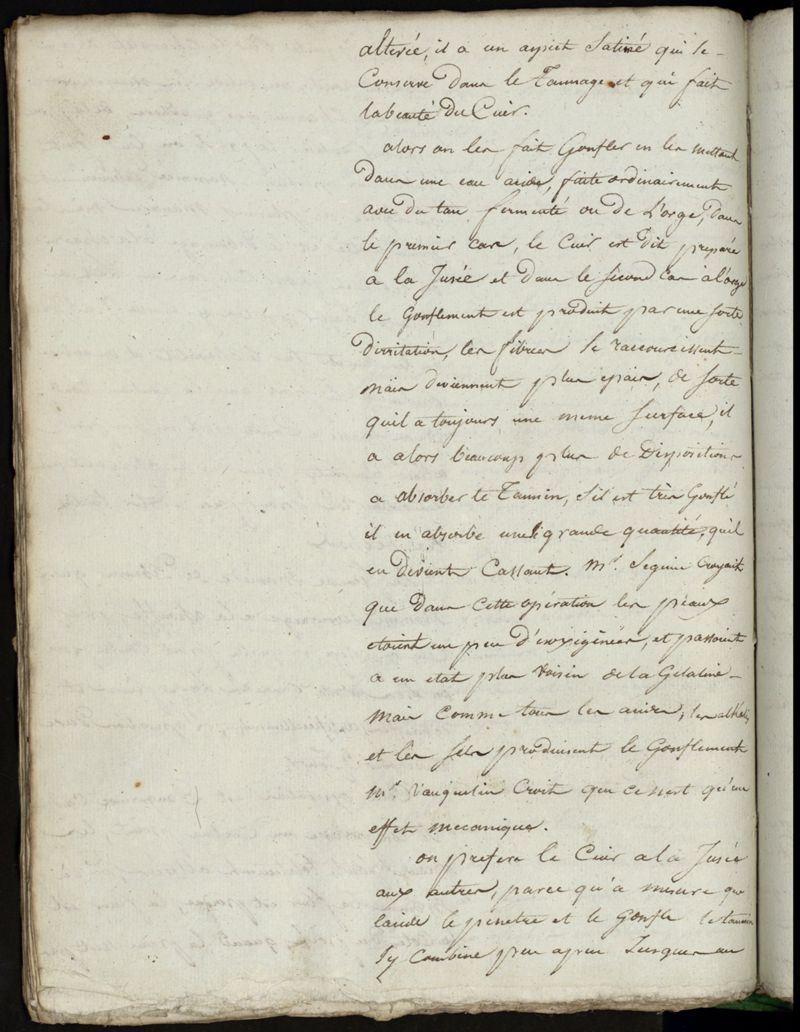 alterée, il a un aspect Satiné qui Se
Conserve Dans le Tannage et qui fait
la beauté Du Cuir.
alors on les fait Gonfler en les mettant
Dans une eau acide, faite ordinairement
avec du tan fermenté ou de L'orge, Dans
le premier cas, le Cuir est Dit preparé
a la Jusée et Dans le Second Cas à l'orge
le Gonflement est produit par une Sorte
Dirritation, les fibres Se raccourcissent
mais deviennent plus epais, de Sorte
quil a toujours une meme Surface, il
a alors beaucoup plus de Disposition
a absorber le Tannin, S'il est très Gonflé
il en absorbe une Si grande quantité, qu'il
en Devient Cassant. Mr. Seguin Croyait
que Dans Cette opération les peaux
etoient un peu D'esoxigénées, et passoient
a un etat plus Voisin de la Gelatine
Mais Comme tous les acides, les alkalis
et les Sels produisent le Gonflement
Mr. Vauquelin Croit que ce n'est qu'un
effet mecanique.
on prefere le Cuir a la Jusée
aux autres, parce qu'a mesure que
l'acide le penetre et le Gonfle le tannin
Sy Combine peu apeu Jusques au